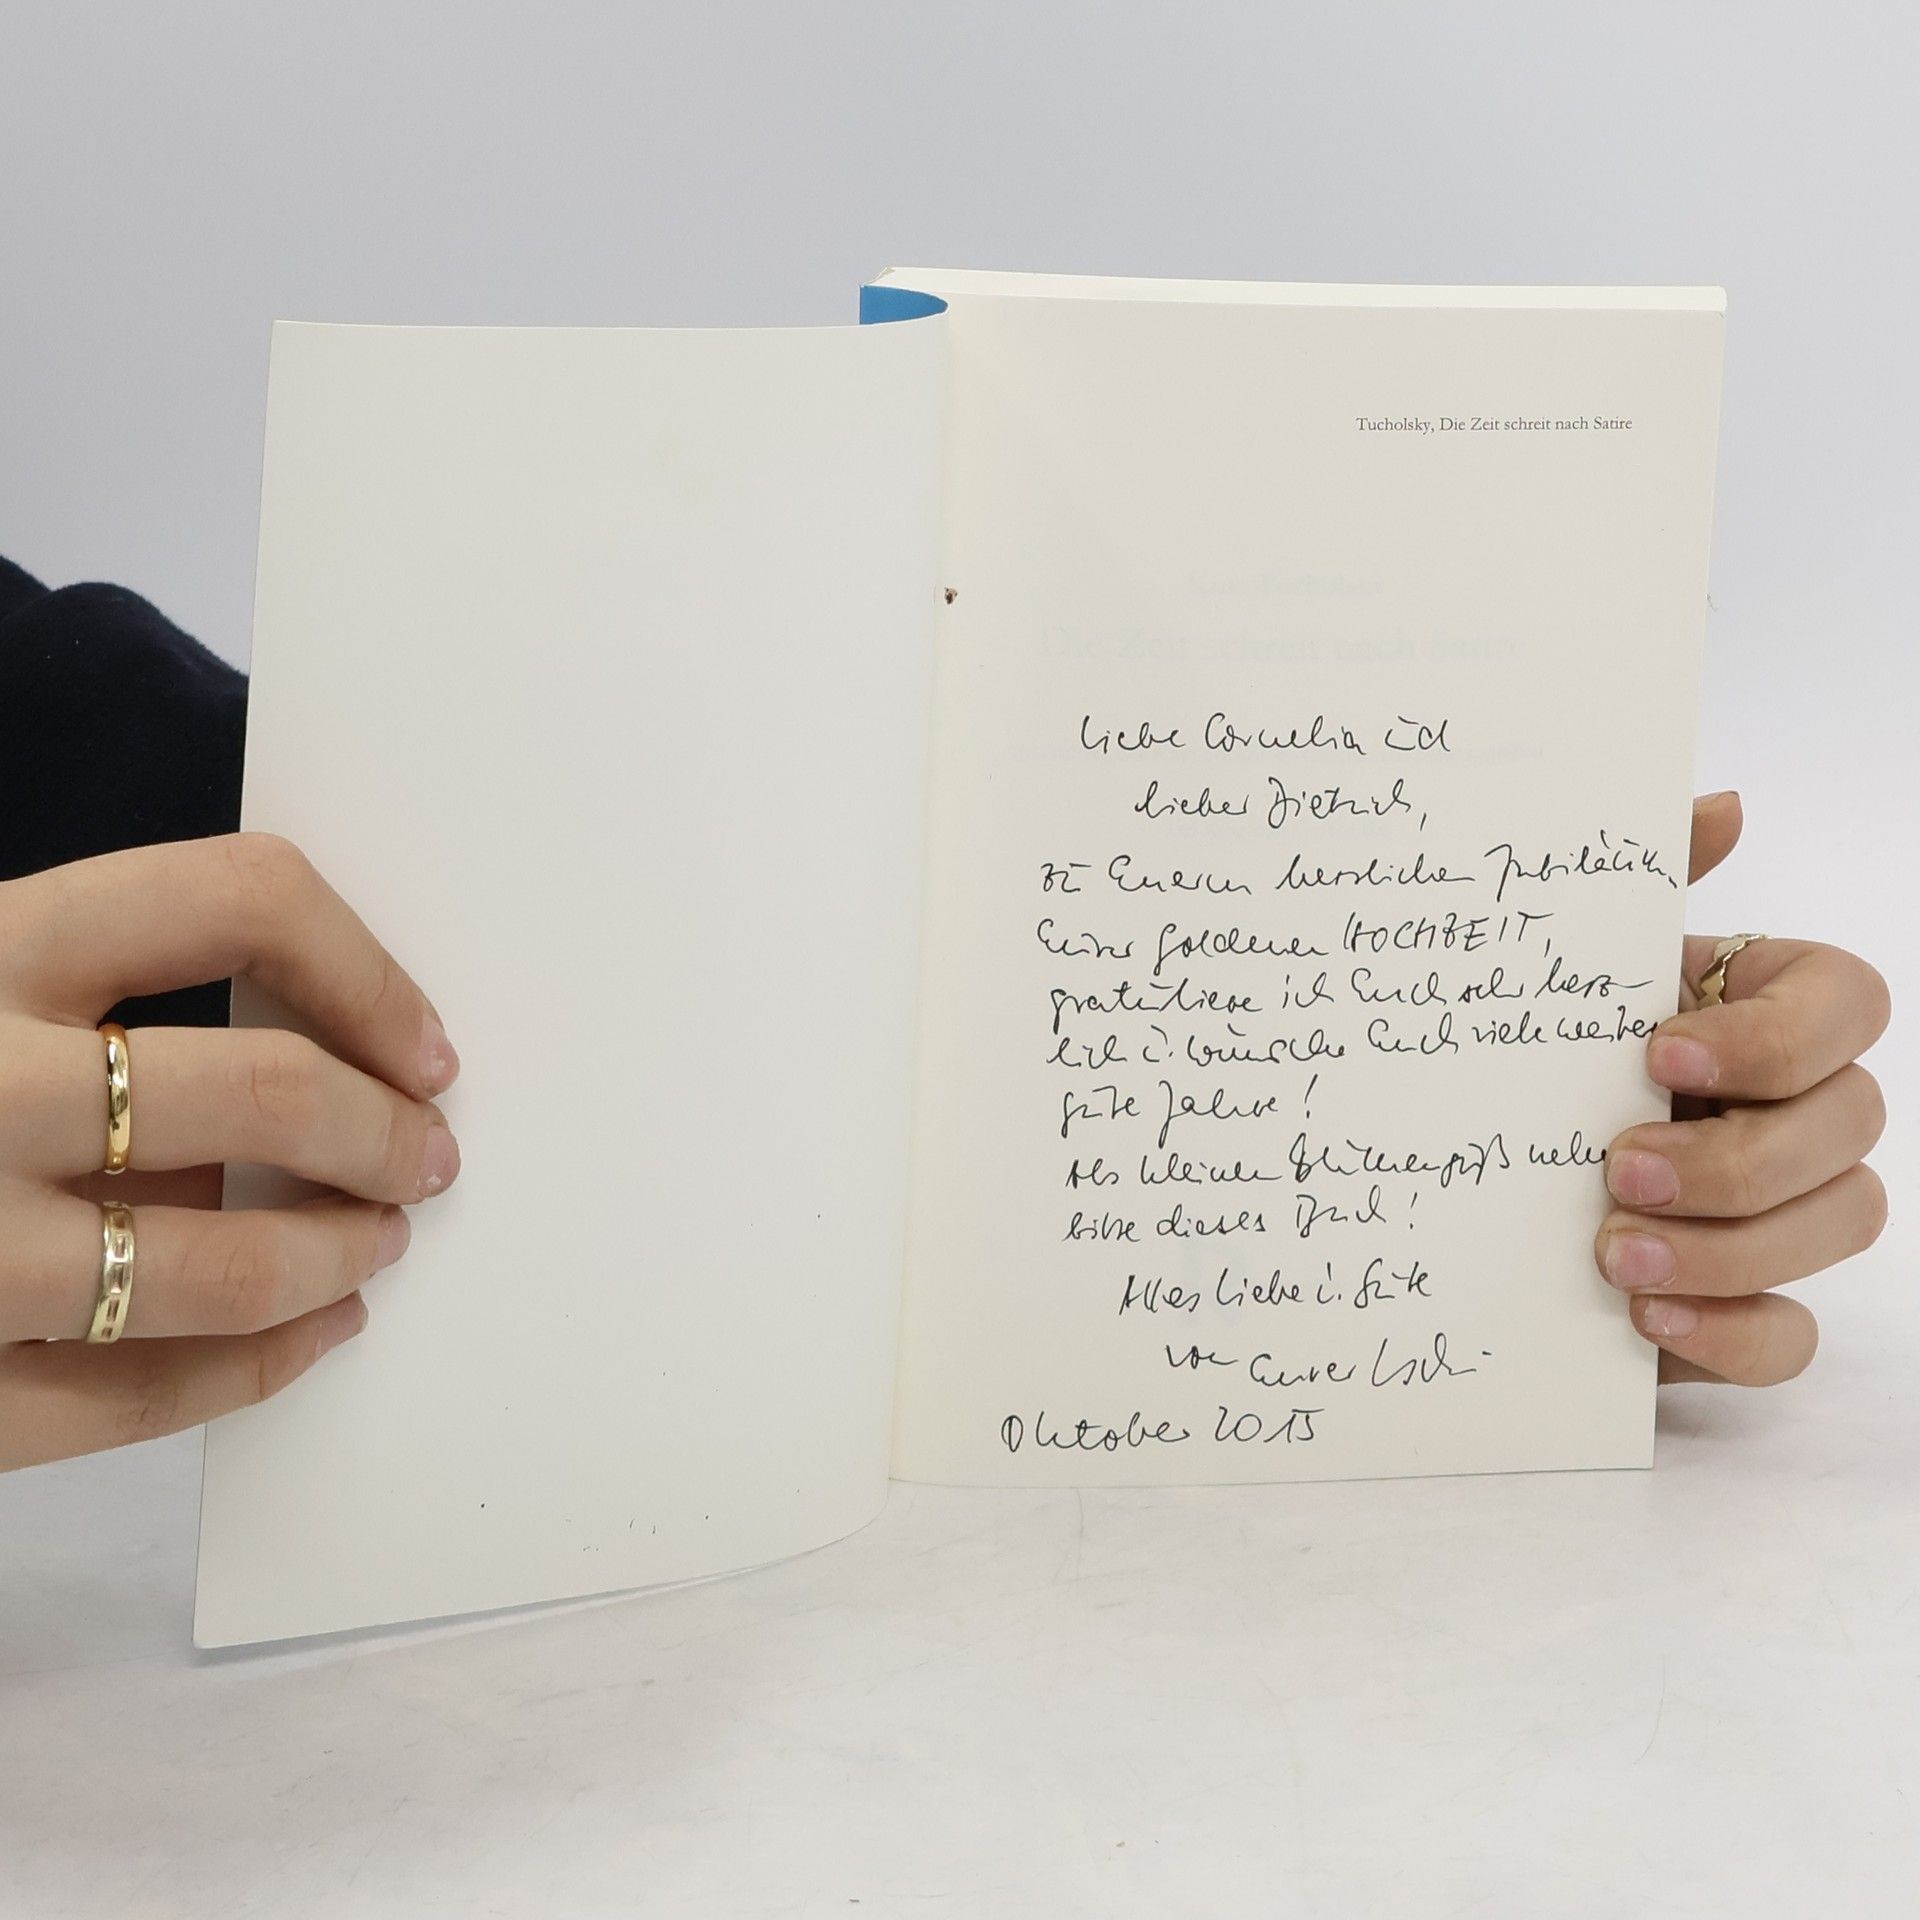 Tucholsky, Die Zeit schreit nach Satire
Die Zeit schreit nach Satire
Liebe Cornelia ūd
lieber Dietrich,
zū Euerm herrlichen Jubiläum,
Eurer goldenen HOCHZEIT,
gratuliere ich Euch sehr herz-
lich u. wünsche Euch viele weitere
gute Jahre!
Als kleinen Blütengruß
bitte dieses Buch!
Alles Liebe u. Gute
von Eurer
Oktober 2015